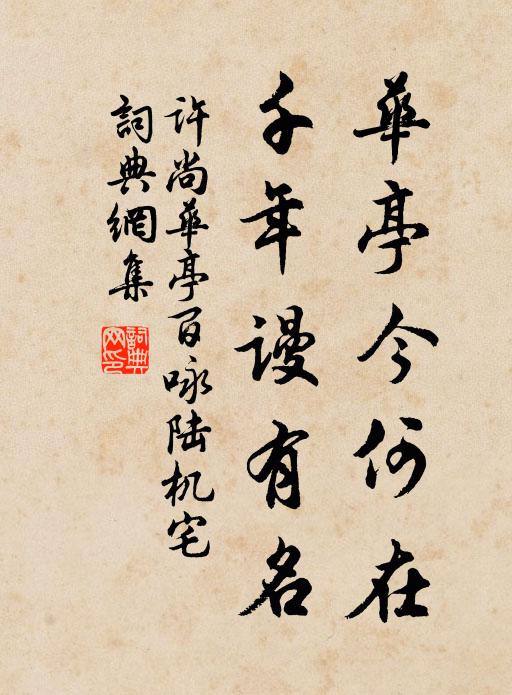 華亭今何在
千年謾有名
许尚華亭百咏陆机宅
詞典網集
詞典
网印